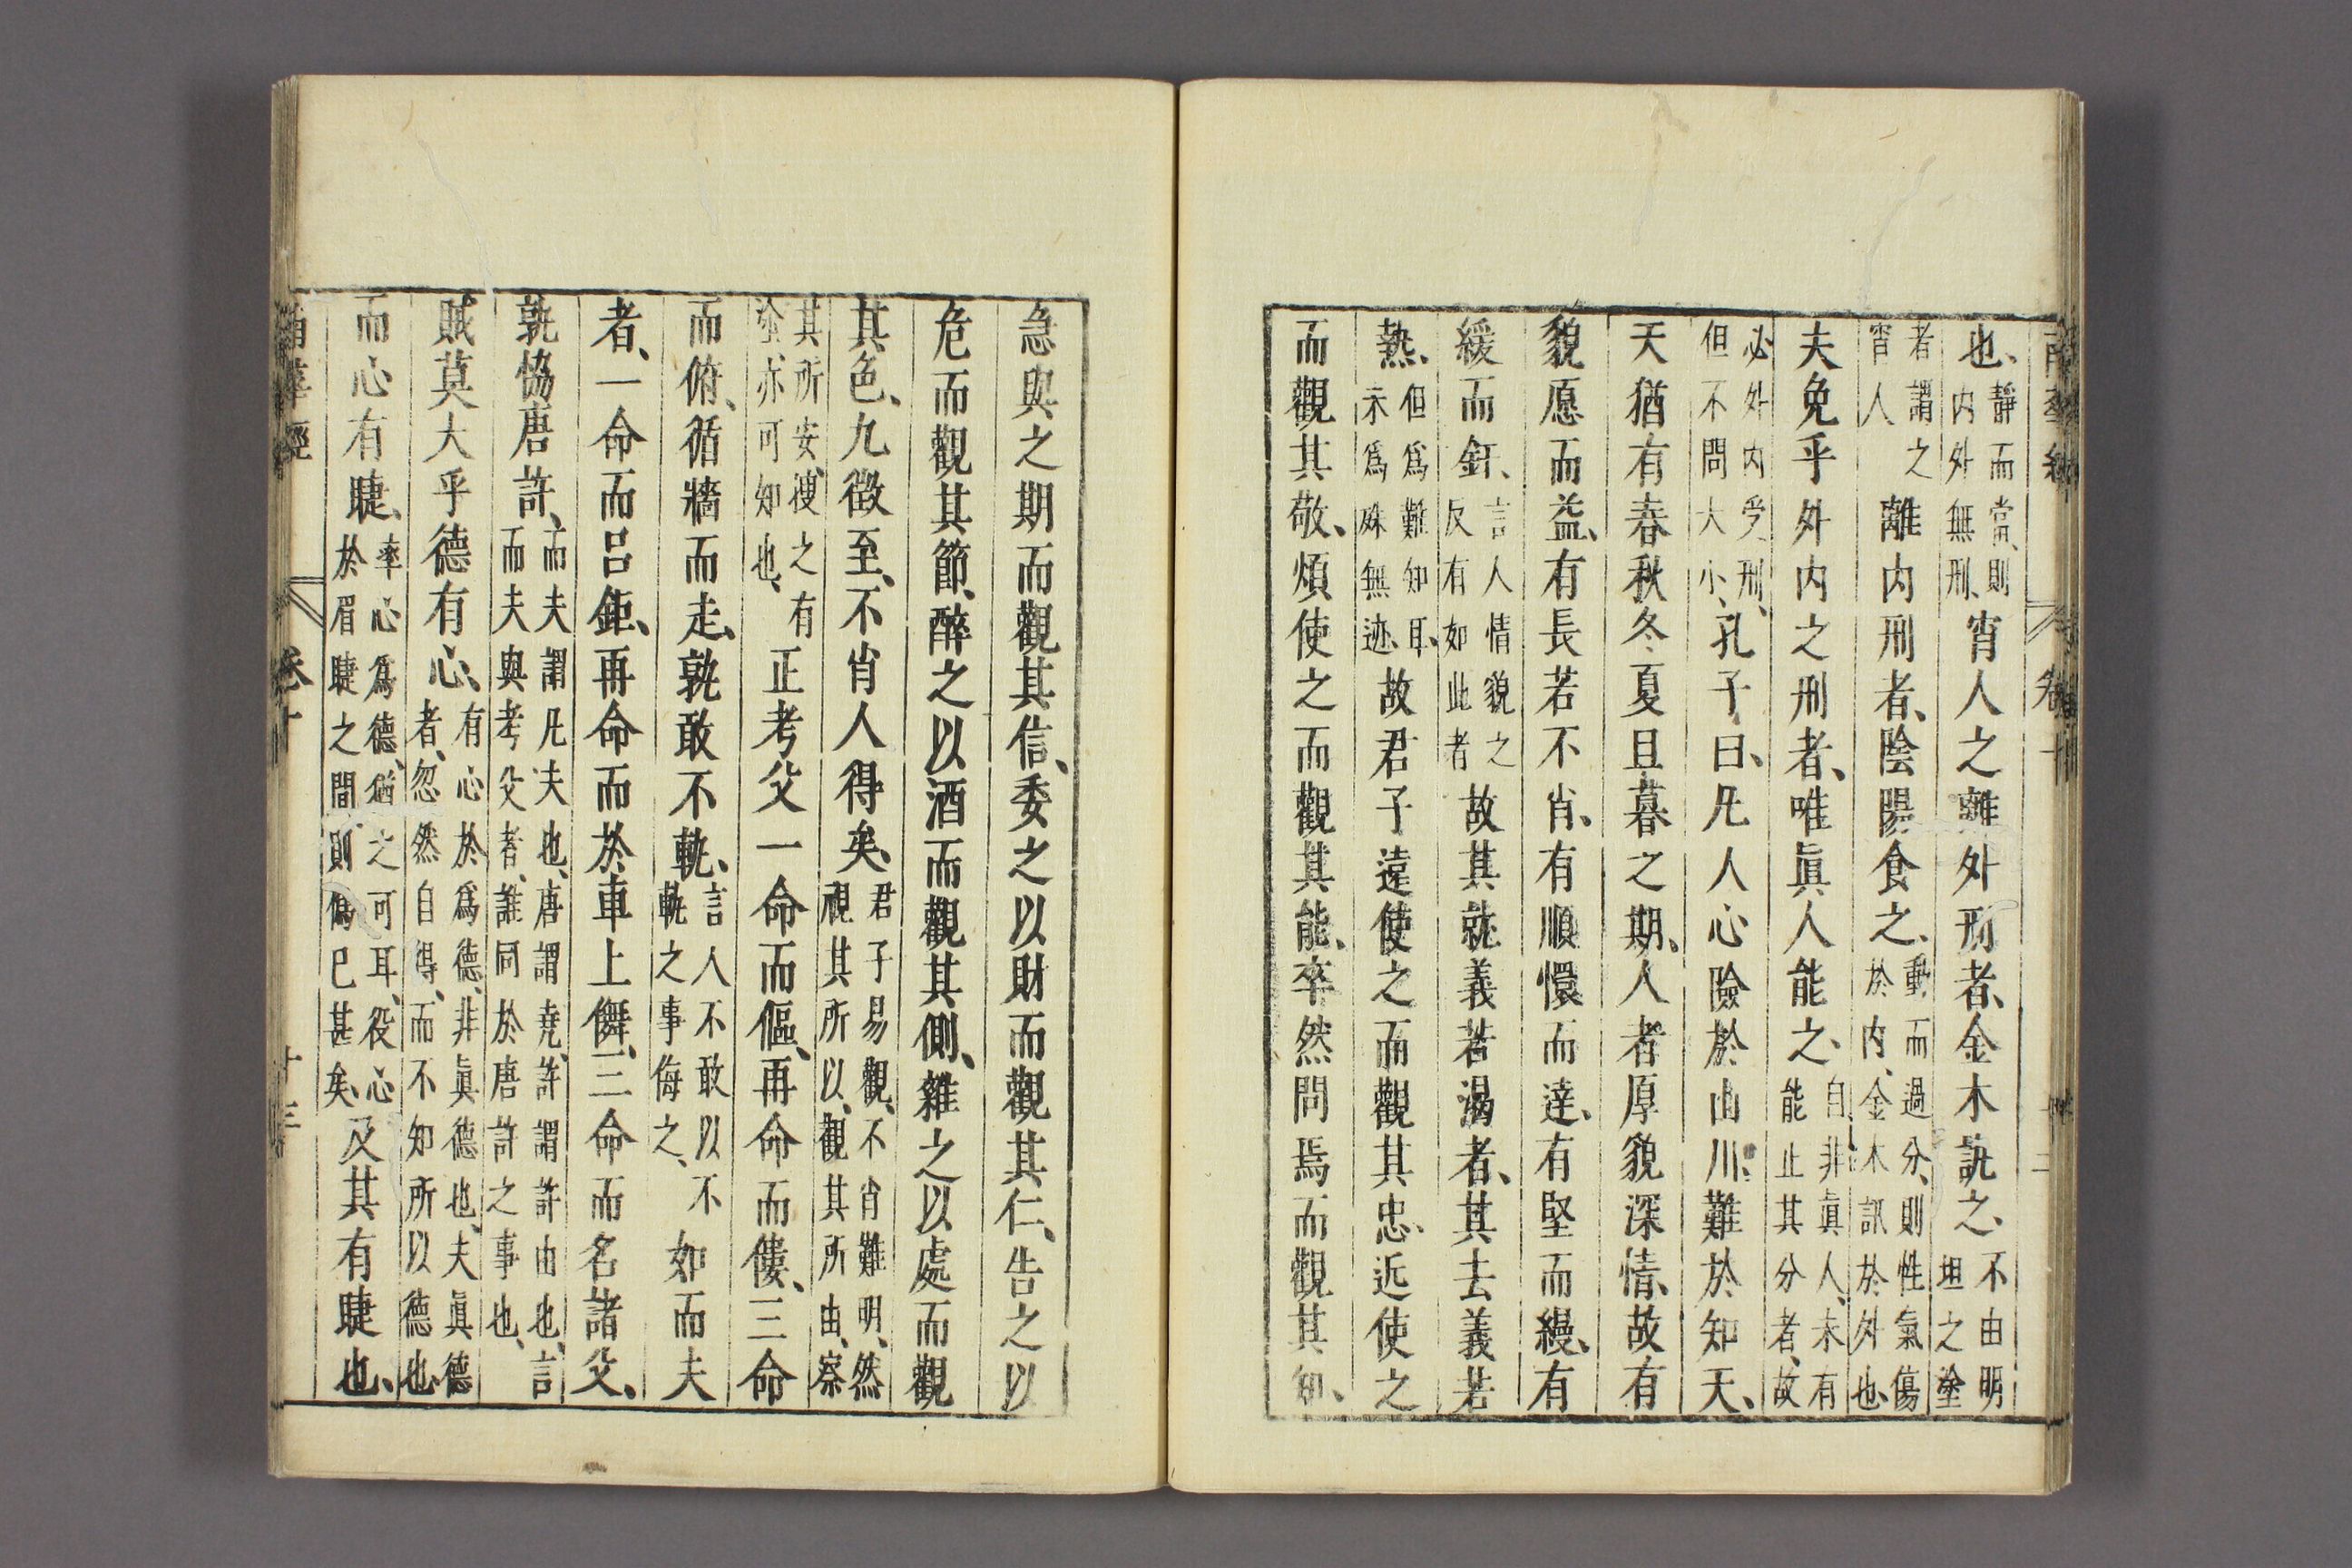 南華經 卷十
也、靜而當、則內外無刑、宵人之離外刑者、金木訊之、不由明坦之塗
者謂之宵人離內刑者、陰陽食之、動而過分、則性氣傷於內、金木訊於外也、
夫免乎外内之刑者、唯眞人能之、自非眞人、未有能止其分者、故
必外內受刑、但不問大小、孔子曰、凡人心險於山川、難於知天、
天猶有春秋冬夏旦暮之期、人者厚貌深情、故有
貌愿而益、有長若不肖、有順懁而達、有堅而縵、有
緩而釬、言人情貌之反有如此者故其就義若渴者、其去義若
熱、但爲難知耳、未爲殊無迹、故君子遠使之而觀其忠、近使之
而觀其敬、煩使之而觀其能、卒然問焉而觀其知、
急與之期而觀其信、委之以財而觀其仁、告之以
危而觀其節、醉之以酒而觀其側、雜之以處而觀
其色、九徵至、不肖人得矣、君子易觀、不肖難明、然視其所以、觀其所由、察
其所安、搜之有塗、亦可知也、正考父一命而傴、再命而僂、三命
而俯、循牆而走、孰敢不軌、言人不敢以不軌之事侮之、如而夫
者、一命而呂鉅、再命而於車上儛、三命而名諸父、
孰協唐許、而夫謂凡夫也、唐謂堯、許謂許由也、言而夫與考父者、誰同於唐許之事也、
賊莫大乎德有心、有心於爲德、非眞德也、夫眞德者、忽然自得、而不知所以德也
而心有睫、率心爲德、猶之可耳、役心於眉睫之間、則僞已甚矣、及其有睫也、
南華經 卷十 十三